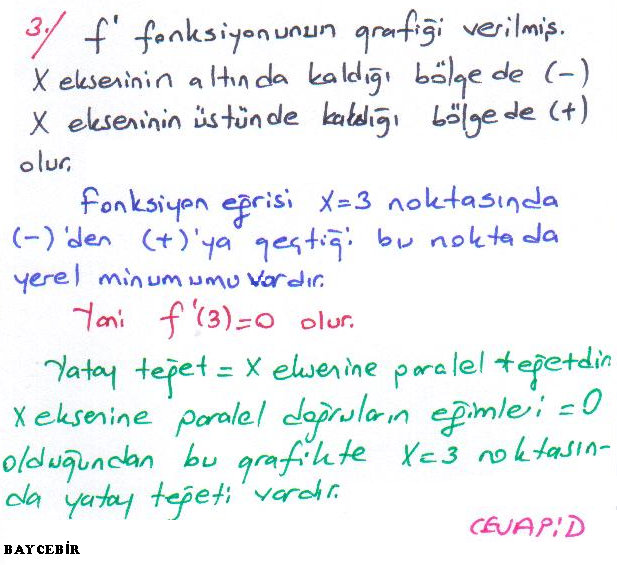 3./ f' fonksiyonunun grafiği verilmiş.
X ekseninin altında kaldığı bölgede (-)
X ekseninin üstünde kaldığı bölgede (+)
olur.
Fonksiyon eğrisi x=3 noktasında
(-)'den (+)'ya geçtiği bu noktada
yerel minumumu vardır.
Yani f'(3)=0 olur.
Yatay teğet = X eksenine paralel teğetdir.
X eksenine paralel doğruların eğimleri =0
olduğundan bu grafikte x=3 noktasın-
da yatay teğeti vardır.
CEVAP:D
BAYCEBİR